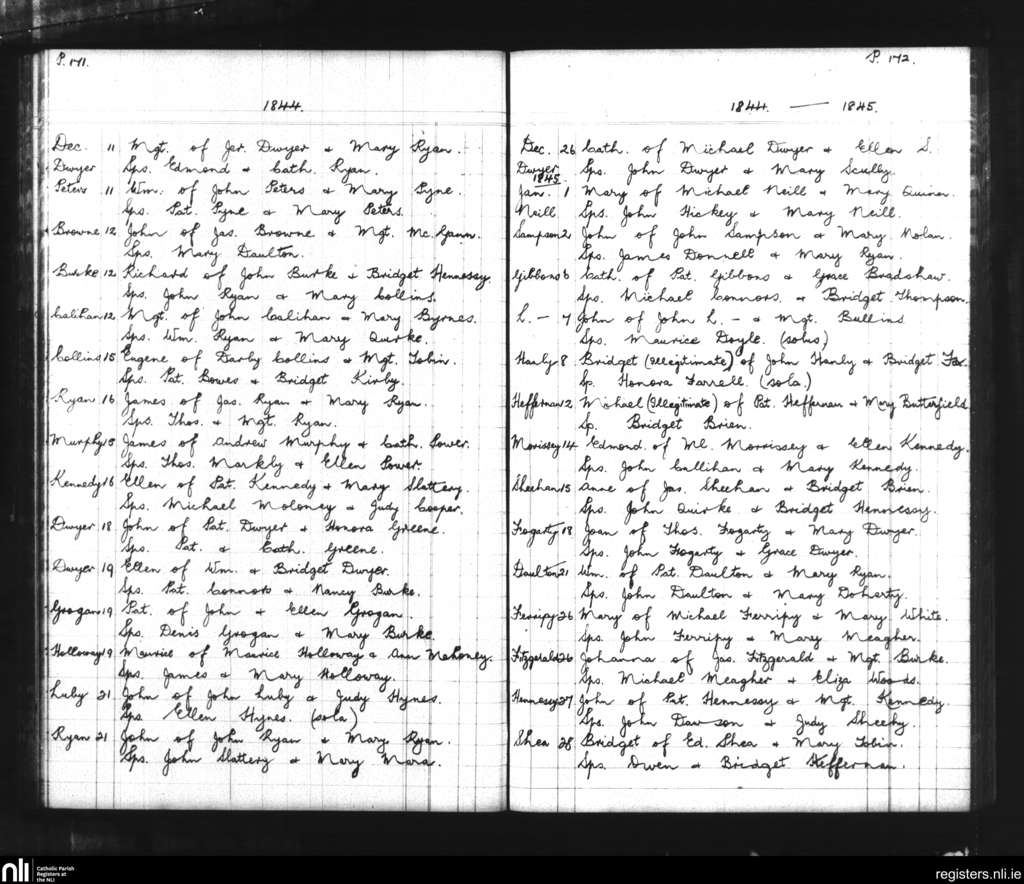 P. 171.
1844.
Dec. 11 Mgt. of Jer. Dwyer & Mary Ryan.
Dwyer Sps. Edmond & Cath. Ryan.
Peters 11 Wm. of John Peters & Mary Pyne.
Sps. Pat. Pyne & Mary Peters.
Browne 12 John of Jas. Browne & Mgt. McGann.
Sps. Mary Daulton.
Burke 12 Richard of John Burke & Bridget Hennessy.
Sps. John Ryan & Mary Collins.
Calihan 12 Mgt. of John Calihan & Mary Byrnes.
Sps. Wm. Ryan & Mary Quirke.
Collins 15 Eugene of Darby Collins & Mgt. Tobin.
Sps. Pat. Bowes & Bridget Kirby.
Ryan 16 James of Jas. Ryan & Mary Ryan.
Sps. Thos. & Mgt. Ryan.
Murphy 15 James of Andrew Murphy & Cath. Power.
Sps. Thos. Markly & Ellen Power.
Kennedy 16 Ellen of Pat. Kennedy & Mary Slattery.
Sps. Michael Moloney & Judy Cooper.
Dwyer 18 John of Pat. Dwyer & Honora Greene.
Sps. Pat. & Cath. Greene.
Dwyer 19 Ellen of Wm. & Bridget Dwyer.
Sps. Pat. Connors & Nancy Burke.
Grogan 19 Pat. of John & Ellen Grogan.
Sps. Denis Grogan & Mary Burke.
Holloway 19 Maurice of Maurice Holloway & Ann Mahoney.
Sps. James & Mary Holloway.
Luby 21 John of John Luby & Judy Hynes.
Sps. Ellen Hynes. (sola)
Ryan 21 John of John Ryan & Mary Ryan.
Sps. John Slattery & Mary Mara.
P. 172.
1844 — 1845.
Dec. 26 Cath. of Michael Dwyer & Ellen S.
Dwyer Sps. John Dwyer & Mary Scully.
1845
Jan. 1 Mary of Michael Neill & Mary Quinan.
Neill Sps. John Hickey & Mary Neill.
Sampson 2 John of John Sampson & Mary Nolan.
Sps. James Donnell & Mary Ryan.
Gibbons 6 Cath. of Pat. Gibbons & Grace Bradshaw.
Sps. Michael Connors. & Bridget Thompson.
L. — 7 John of John L. — & Mgt. Bullins.
Sps. Maurice Doyle. (solus)
Hanly 8 Bridget (Illegitimate) of John Hanly & Bridget Fox.
Sp. Honora Farrell. (sola.)
Heffernan 12 Michael (Illegitimate) of Pat. Heffernan & Mary Butterfield
Sp. Bridget Brien.
Morissey 14 Edmond of Ml. Morrissey & Ellen Kennedy.
Sps. John Cullihan & Mary Kennedy.
Sheehan 15 Anne of Jas. Sheehan & Bridget Brien.
Sps. John Quirke & Bridget Hennessy.
Fogarty 18 Joan of Thos. Fogarty & Mary Dwyer.
Sps. John Fogarty & Grace Dwyer.
Daulton 21 Wm. of Pat. Daulton & Mary Ryan.
Sps. John Daulton & Mary Doharty.
Ferripy 26 Mary of Michael Ferripy & Mary White.
Sps. John Ferripy & Mary Meagher.
Fitzgerald 26 Johanna of Jas. Fitzgerald & Mgt. Burke.
Sps. Michael Meagher & Eliza Woods.
Hennessy 27 John of Pat. Hennessy & Mgt. Kennedy.
Sps. John Dawson & Judy Sheehy.
Shea 28 Bridget of Ed. Shea & Mary Tobin.
Sps. Owen & Bridget Heffernan.
nli Catholic Parish
Registers at
the NLI
registers.nli.ie